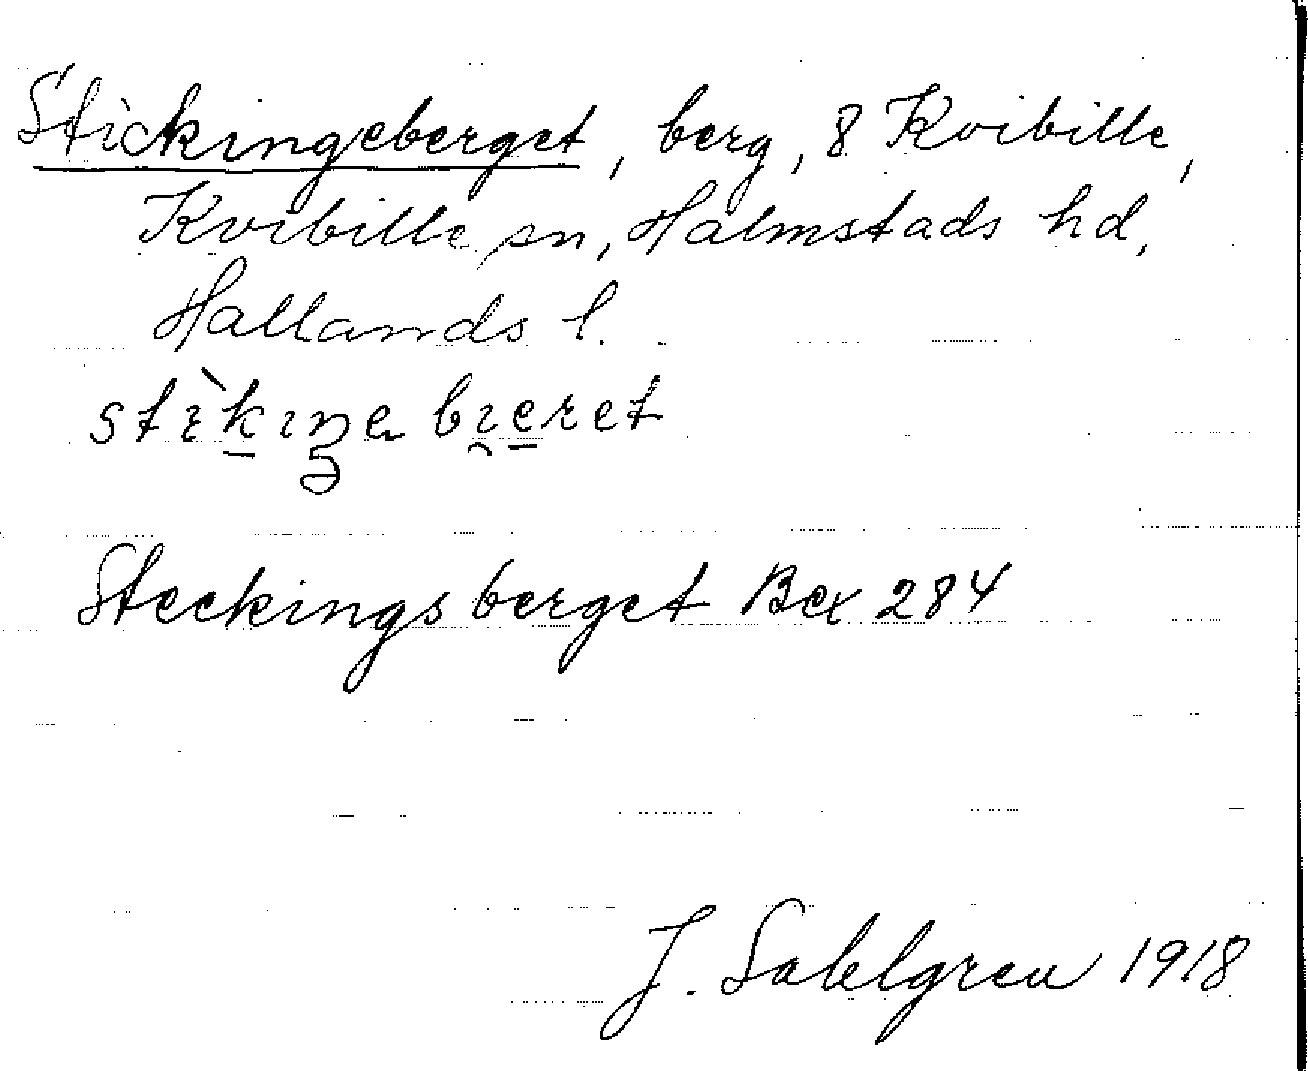 Stickingeberget, berg, 8 Kvibille,
Kvibille sn, Halmstads hd,
Hallands l.
stìkiŋa bi̯eret
Steckings berget Bex 284
J. Sahlgren 1918